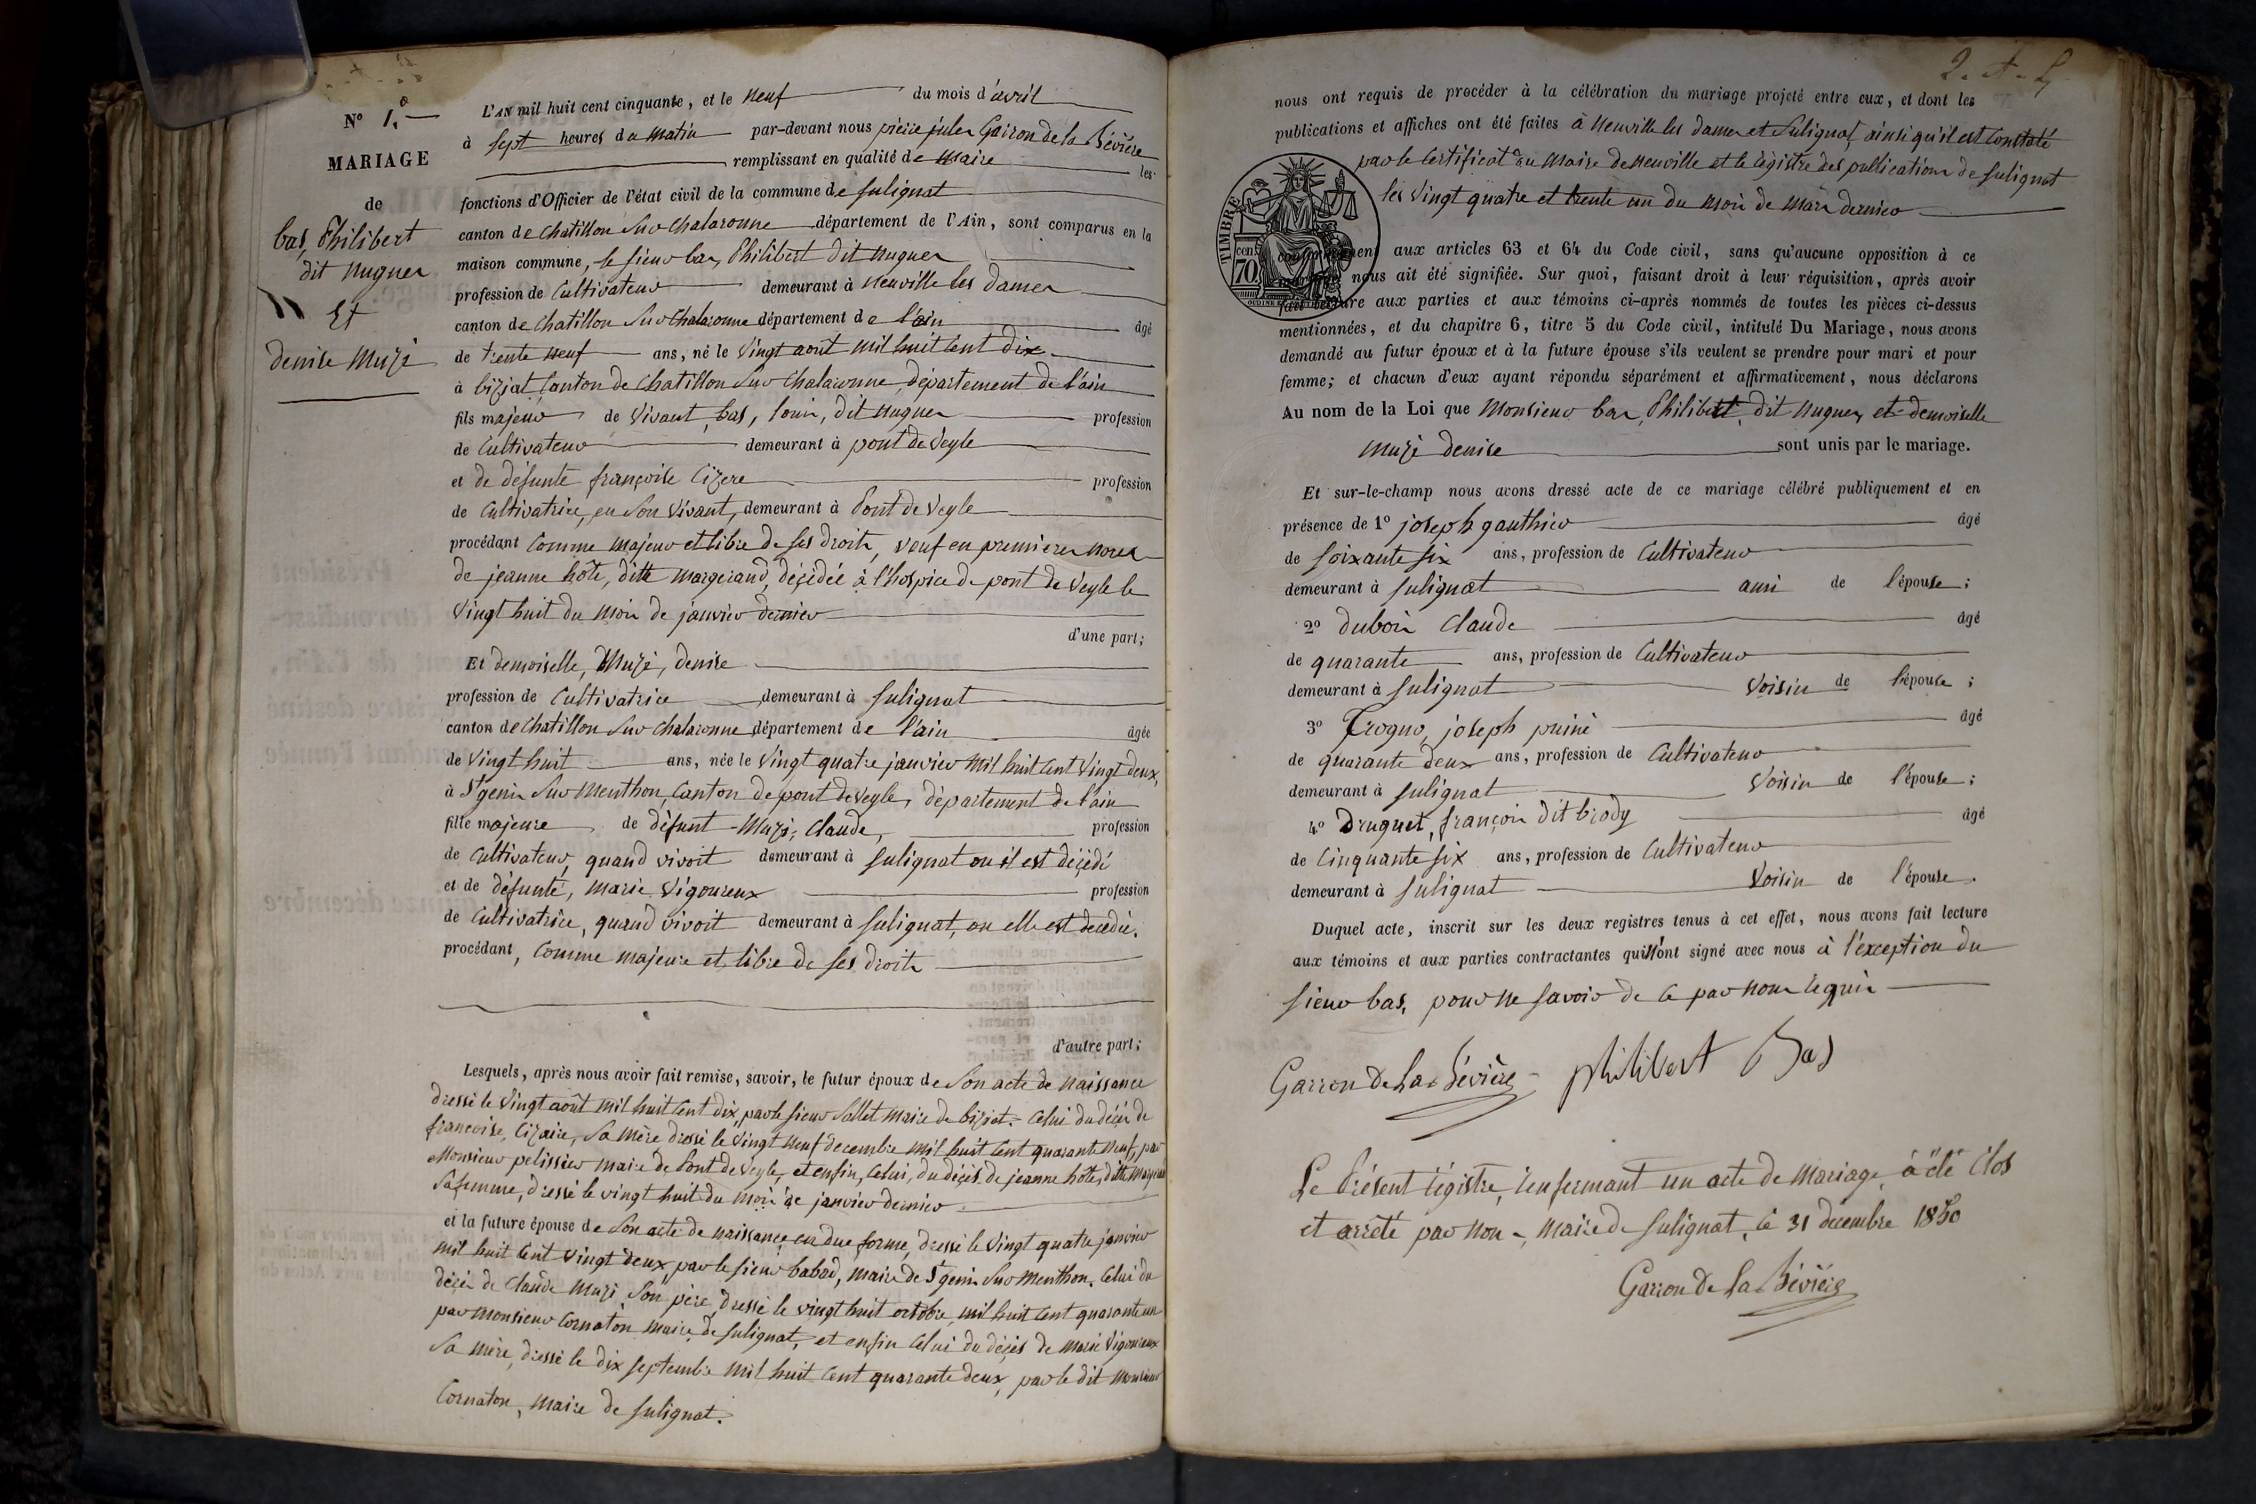 N° 1.°
MARIAGE
de
bas, Philibert
dit nugues
Et
denise Muzi
L'AN mil huit cent cinquante, et le neuf du mois d'avril
à sept heures du matin par-devant nous pierre jules Garron de la Bévière
remplissant en qualité de maire les
fonctions d'Officier de l'état civil de la commune de Sulignat
canton de chatillon Sur chalaronne département de l'Ain, sont comparus en la
maison commune, le sieur bas, Philibert dit nugues
profession de Cultivateur demeurant à neuville les dames
canton de chatillon Sur chalaronne département de l'ain âgé
de trente neuf ans, né le vingt août mil huit cent dix
à biziat canton de chatillon Sur chalaronne, département de l'ain
fils majeur de vivant, bas, louis, dit nugues profession
de Cultivateur demeurant à pont de veyle
et de défunte françoise Cizere profession
de Cultivatrice, en son vivant, demeurant à Pont de veyle
procédant comme majeur et libre de ses droits, veuf en premieres noces
de jeanne hote, ditte margerand, décédée à l'hospice de pont de veyle le
vingt huit du mois de janvier dernier
d'une part;
Et demoiselle, Muzi, denise
profession de Cultivatrice demeurant à Sulignat
canton de chatillon Sur chalaronne département de l'ain âgée
de vingt huit ans, née le vingt quatre janvier mil huit cent vingt deux,
à St genis Sur Menthon, Canton de pont de veyle, département de l'ain
fille majeure de défunt Muzi, Claude, profession
de Cultivateur, quand vivoit demeurant à Sulignat ou il est décédé
et de défunte, marie Vigoureux profession
de Cultivatrice, quand vivoit demeurant à Sulignat, ou elle est decedée.
procédant, comme majeure et libre de ses droits
d'autre part;
Lesquels, après nous avoir fait remise, savoir, le futur époux de son acte de naissance
dressé le vingt août mil huit cent dix, par le sieur Sallet maire de biziat. Celui du décés de
francoise, Cizaire, sa mère dressé le vingt neuf decembre mil huit cent quarante neuf, par
Monsieur pelissier maire de Pont de veyle, et enfin, celui, du décés de jeanne hote, ditte Margerand
sa femme, dressé le vingt huit du mois de janvier dernier
et la future épouse de son acte de naissance en due forme, dressé le vingt quatre janvier
mil huit cent vingt deux, par le sieur babad, maire de St genis Sur Menthon. Celui du
décés de Claude Muzi, son père, dressé le vingt huit octobre, mil huit cent quarante un
par monsieur Cornaton maire de Sulignat, et enfin celui du décés de marie Vigoureux
sa mère, dressé le dix septembre mil huit cent quarante deux, par le dit monsieur
Cornaton, maire de Sulignat.
nous ont requis de procéder à la célébration du mariage projeté entre eux, et dont les
publications et affiches ont été faites à neuville les dames et Sulignat, ainsi qu'il est constaté
par le certificat du Maire de neuville et le régistre des publications de Sulignat
les vingt quatre et trente un du mois de mars dernier
TIMBRE
70
conformément aux articles 63 et 64 du Code civil, sans qu'aucune opposition à ce
mariage nous ait été signifiée. Sur quoi, faisant droit à leur réquisition, après avoir
fait lecture aux parties et aux témoins ci-après nommés de toutes les pièces ci-dessus
mentionnées, et du chapitre 6, titre 5 du Code civil, intitulé Du Mariage, nous avons
demandé au futur époux et à la future épouse s'ils veulent se prendre pour mari et pour
femme; et chacun d'eux ayant répondu séparément et affirmativement, nous déclarons
Au nom de la Loi que Monsieur bas, Philibert, dit nugues, et demoiselle
muzi denise sont unis par le mariage.
Et sur-le-champ nous avons dressé acte de ce mariage célébré publiquement et en
présence de 1° joseph gauthier âgé
de soixante six ans, profession de Cultivateur
demeurant à Sulignat ami de l'épouse;
2° dubois Claude âgé
de quarante ans, profession de Cultivateur
demeurant à Sulignat voisin de l'épouse;
3° joseph puiné âgé
de quarante deux ans, profession de Cultivateur
demeurant à Sulignat voisin de l'épouse;
4° Druguet, françois dit brody âgé
de Cinquante six ans, profession de Cultivateur
demeurant à Sulignat voisin de l'épouse.
Duquel acte, inscrit sur les deux registres tenus à cet effet, nous avons fait lecture
aux témoins et aux parties contractantes qui n'ont signé avec nous à l'exception du
sieur bas, pour ne savoir de ce par nous requis
Garron De La Bévière philibert Bas
Le Présent régistre, renfermant un acte de Mariage, à été Clos
et arrêté par nous, maire de Sulignat, le 31 decembre 1850
Garron De La Bévière